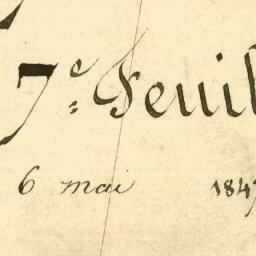 7.e Feuil
6 mai 1847